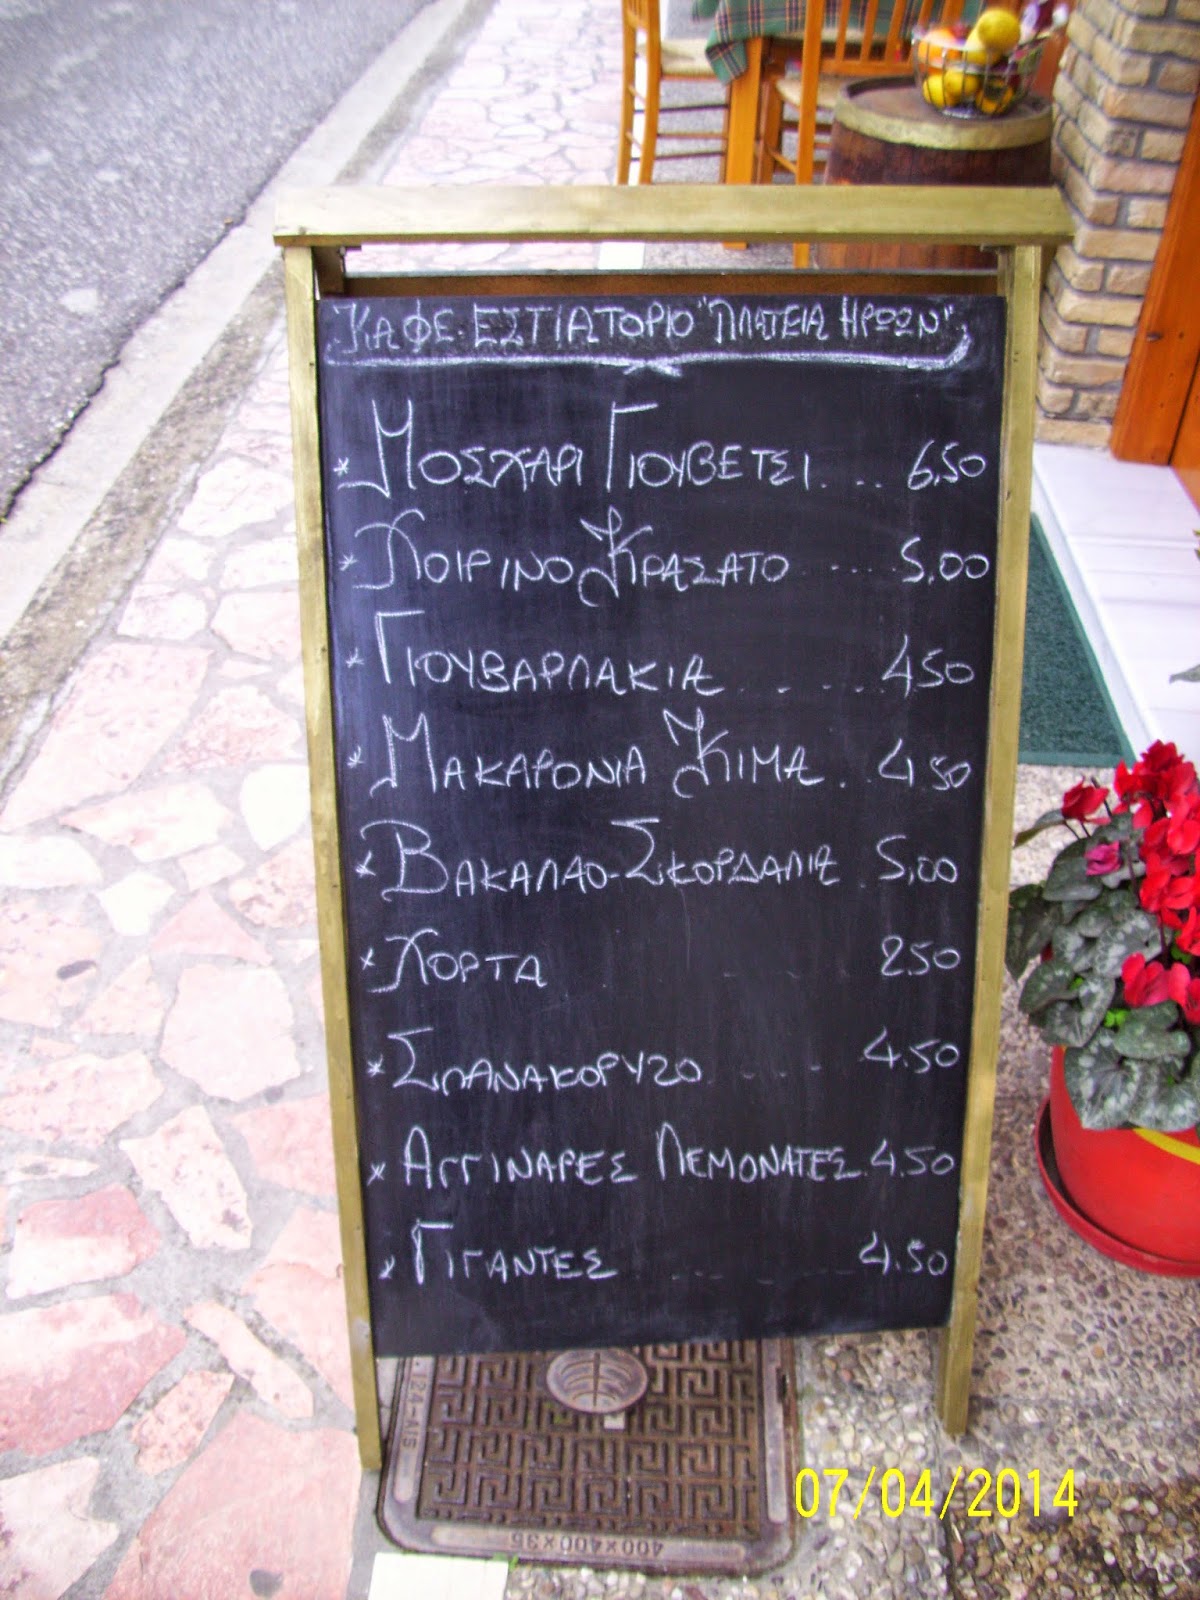 ΚΑΦΕ-ΕΣΤΙΑΤΟΡΙΟ "ΠΛΑΤΕΙΑ ΗΡΩΩΝ"
* ΜΟΣΧΑΡΙ ΓΙΟΥΒΕΤΣΙ.... 6,50
* ΧΟΙΡΙΝΟ ΚΡΑΣΑΤΟ ..... 5,00
* ΓΙΟΥΒΑΡΛΑΚΙΑ ..... 4,50
* ΜΑΚΑΡΟΝΙΑ ΚΙΜΑ .. 4.50
* ΒΑΚΑΛΑΟ-ΣΚΟΡΔΑΛΙΑ . 5,00
* ΧΟΡΤΑ 2.50
* ΣΠΑΝΑΚΟΡΥΖΟ .... 4.50
* ΑΓΓΙΝΑΡΕΣ ΛΕΜΟΝΑΤΕΣ. 4.50
* ΓΙΓΑΝΤΕΣ ..... 4.50
400×400×35
07/04/2014